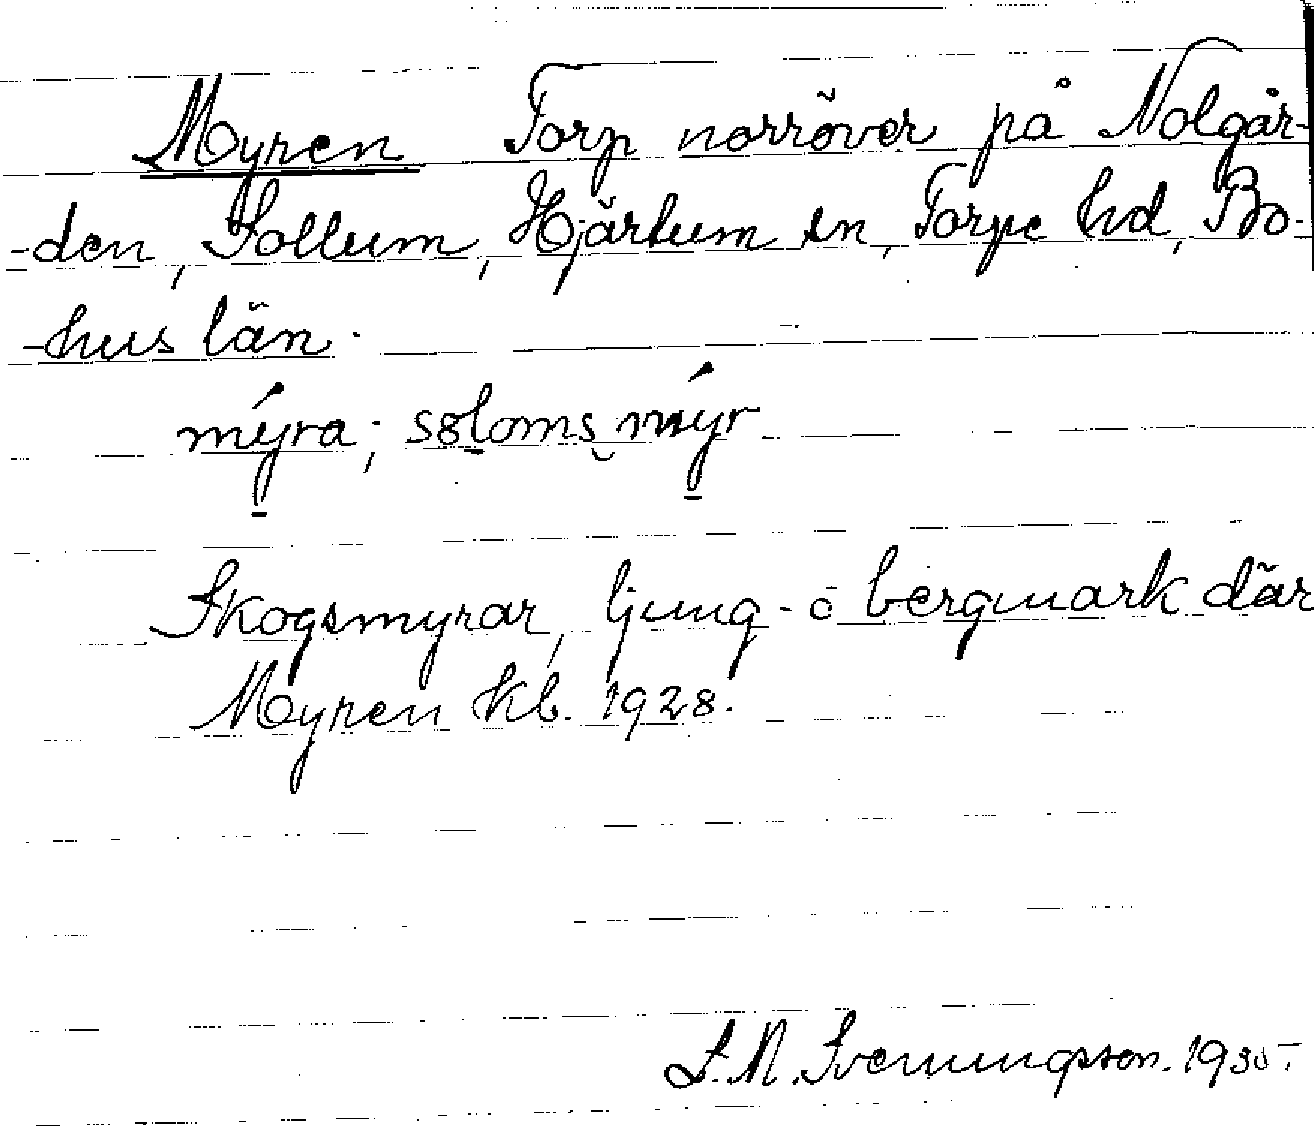 Myren Torp norröver på Nolgår-
-den, Sollum, Hjärtum sn, Torpe hd, Bo-
-hus län.
mýra; søloms mýr
Skogsmyrar, ljung- o bergmark där
Myren kb. 1928.
S. N. Svenungsson. 1935.